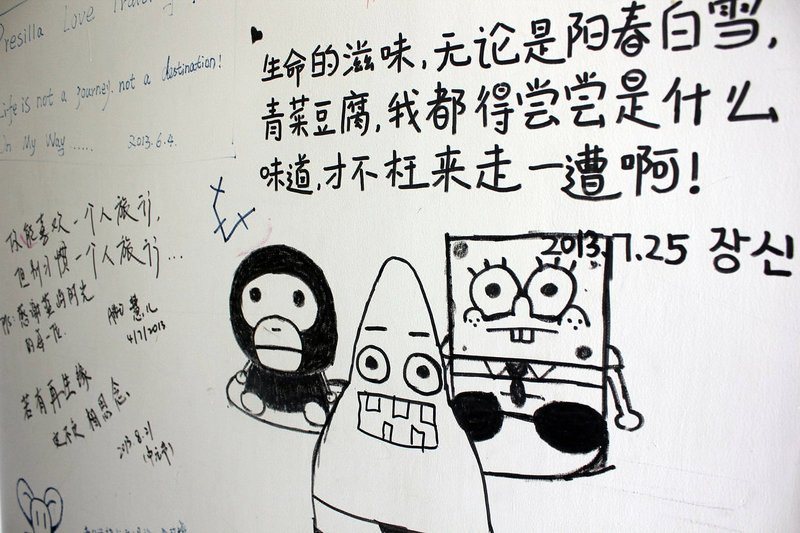 Presilla Love Travel
Life is not a journey, not a destination!
On My Way...... 2013.6.4.
生命的滋味,无论是阳春白雪,
青菜豆腐,我都得尝尝是什么
味道,才不枉来走一遭啊!
2013.7.25 장신
你能喜欢一个人旅行,
但别习惯一个人旅行...
4/7/2013
若有再生缘
相思念
2013.8.21